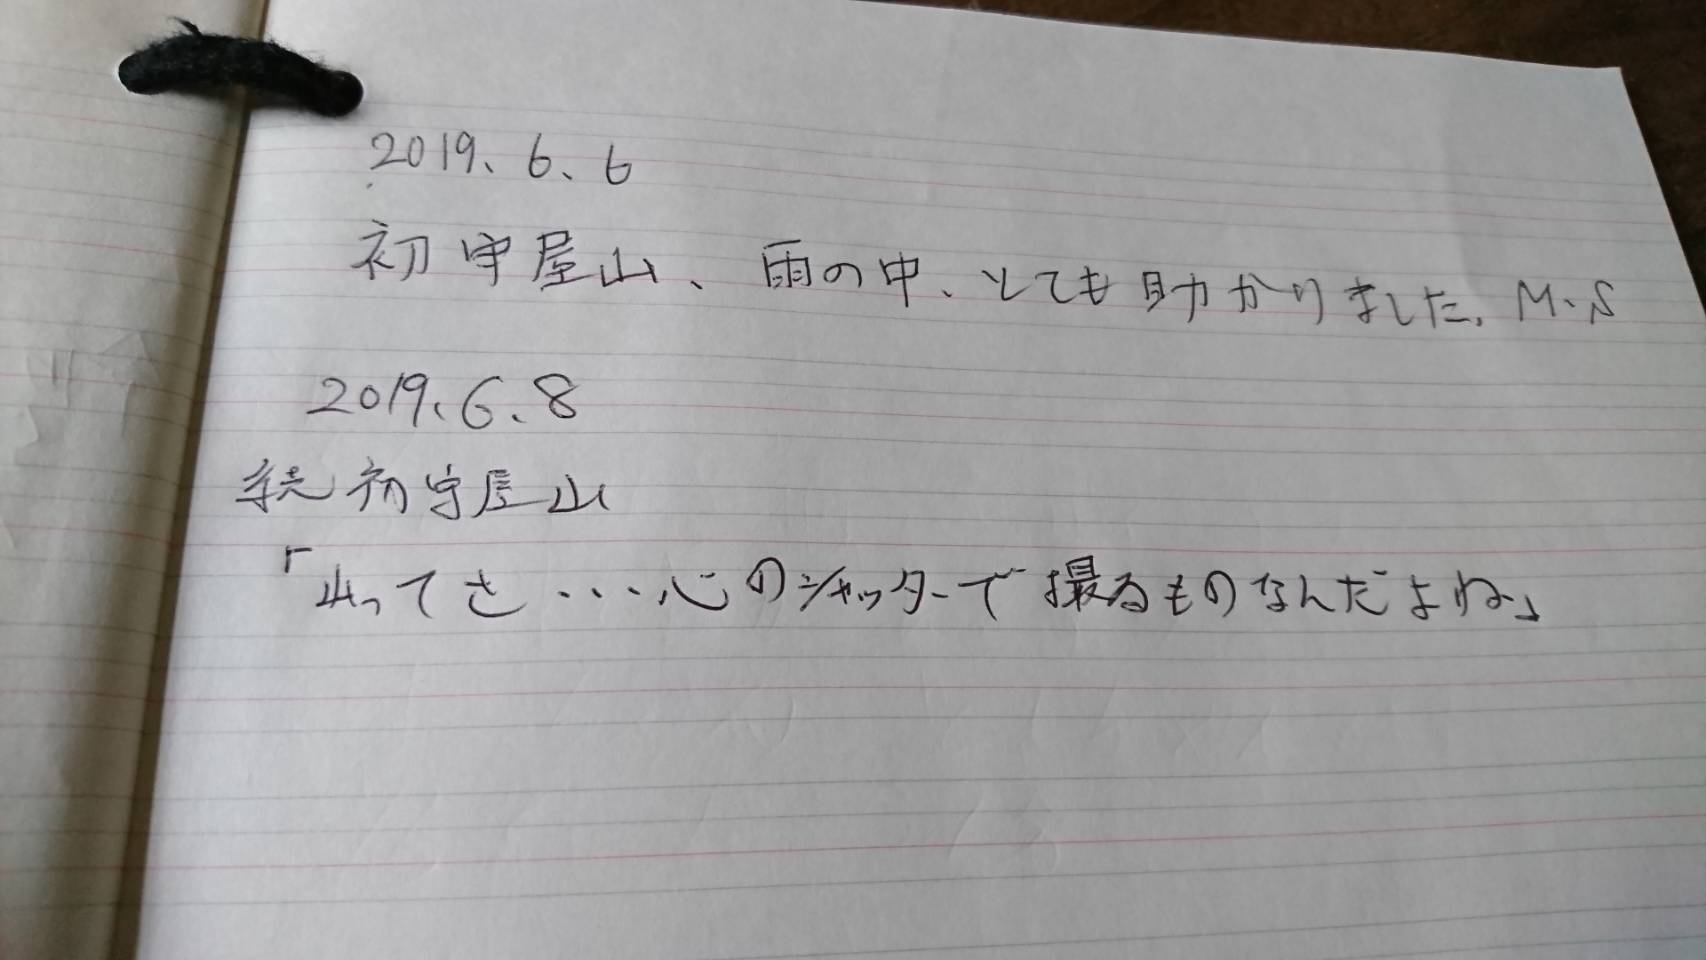 2019、6、6
初守屋山、雨の中、とても助かりました。M・S
2019、6、8
続初守屋山
「山ってさ・・・心のシャッターで撮るものなんだよね」